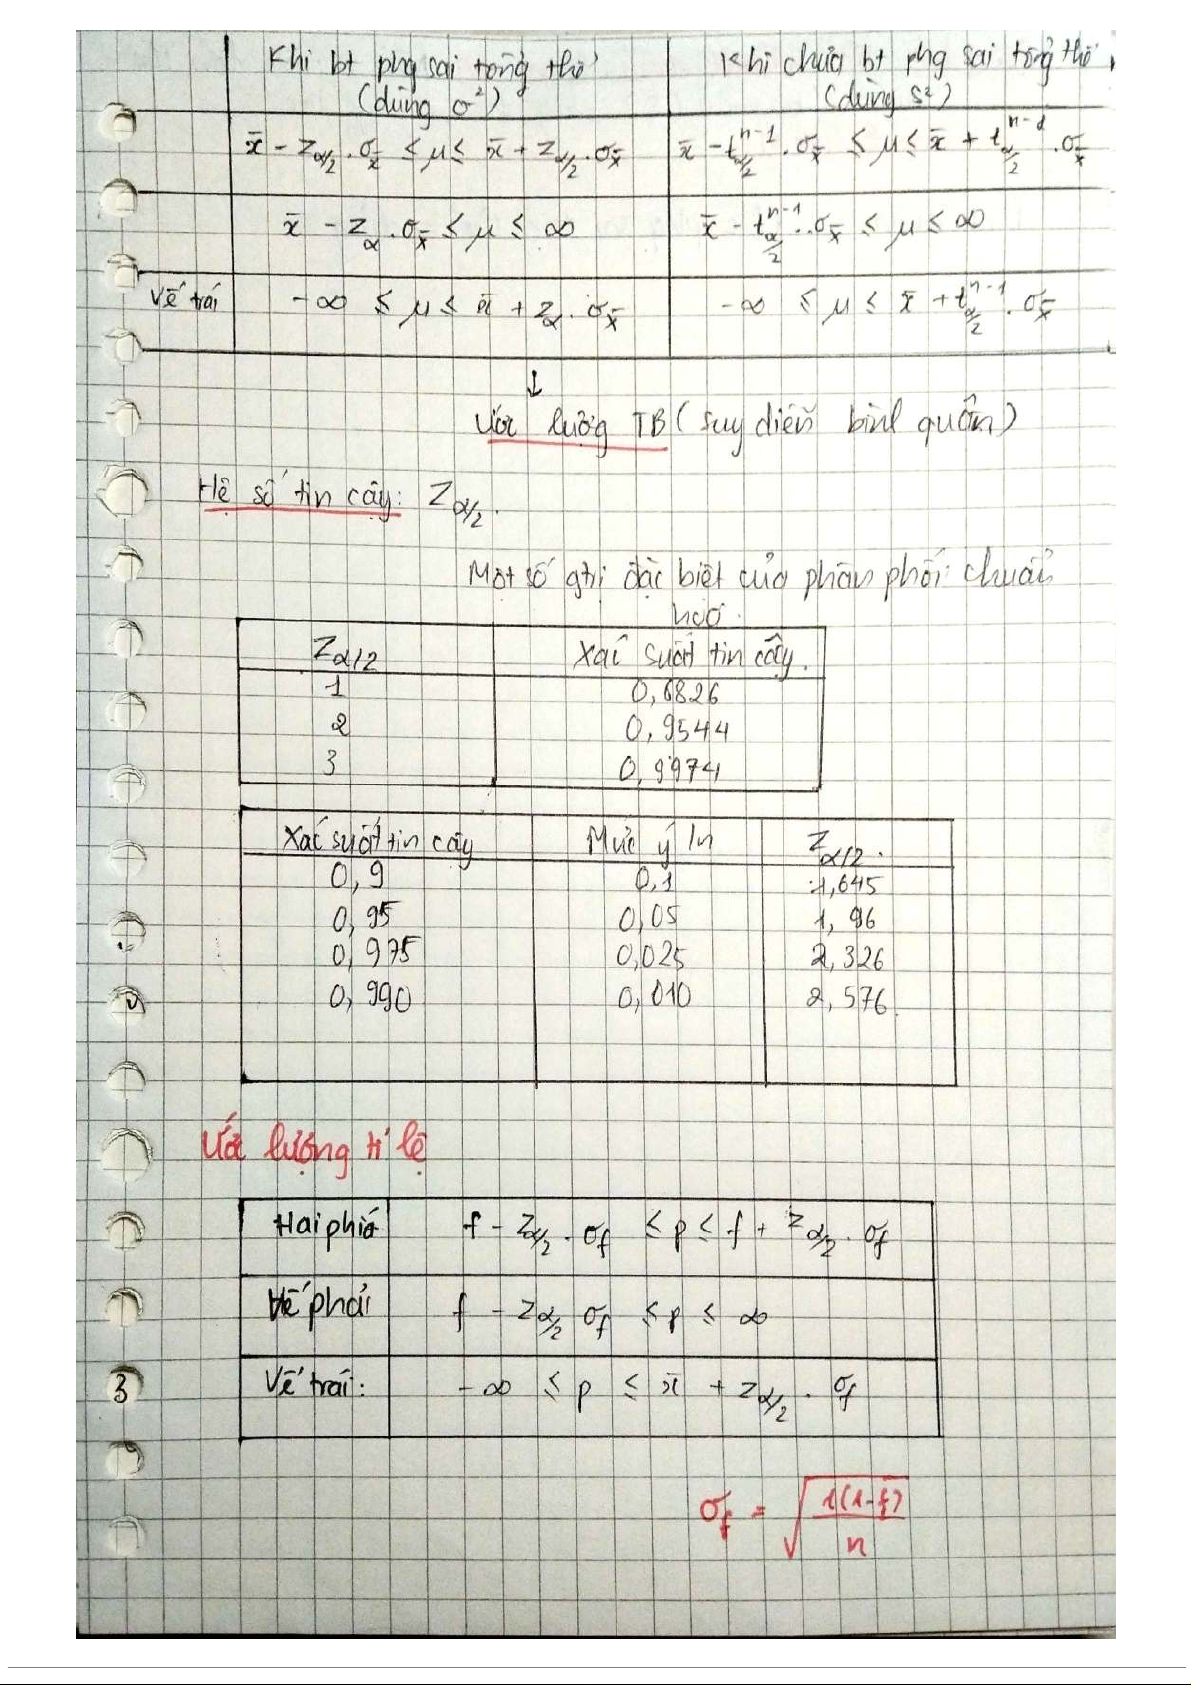 Khi bt phg sai tổng thể Khi chưa bt phg sai tổng thể
(dùng σ²) (dùng s²)
x̄ - Z_{α/2} . σ_x̄ ≤ μ ≤ x̄ + Z_{α/2} . σ_x̄ x̄ - t^{n-1}_{α/2} . σ_x̄ ≤ μ ≤ x̄ + t^{n-1}_{α/2} . σ_x̄
x̄ - Z_α . σ_x̄ ≤ μ ≤ ∞ x̄ - t^{n-1}_{α/2} . σ_x̄ ≤ μ ≤ ∞
Vế trái -∞ ≤ μ ≤ x̄ + Z_α . σ_x̄ -∞ ≤ μ ≤ x̄ + t^{n-1}_{α/2} . σ_x̄
↓
Ước lượng TB (suy diễn bình quân)
Hệ số tin cậy: Z_{α/2}.
Một số gtrị đặc biệt của phân phối chuẩn
hoá.
Z_{α/2} Xác suất tin cậy.
1 0,6826
2 0,9544
3 0,9974
Xác suất tin cậy Mức ý ln Z_{α/2}.
0,9 0,1 1,645
0,95 0,05 1,96
0,975 0,025 2,326
0,990 0,010 2,576
Ước lượng tỉ lệ
Hai phiá f - Z_{α/2} . σ_f ≤ p ≤ f + Z_{α/2} . σ_f
Vế phải f - Z_{α/2} σ_f ≤ p ≤ ∞
Vế trái: -∞ ≤ p ≤ x̄ + Z_{α/2} . σ_f
3
σ_f = √(1(1-f)/n)